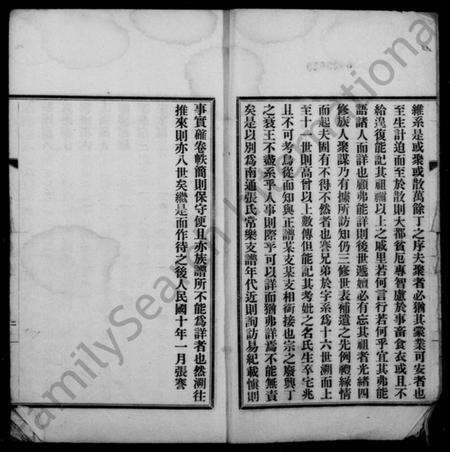 維系是或聚或散萬餘丁之序夫聚者必猶其業業可安者也
至生計迫而至於散則大都貧厄專智慮於事畜食衣或且不
給遑復能記其祖禰以上之戚里若何言行若何乎宜其弗能
語諸人而詳也顧弗能詳則後世遞嬗必有忘其祖者光緒四
修族人聚謀乃有據所訪知仍三修世表補遺之先例禮緣情
而起夫固有不得不然者也謇兄弟於字系為十六世溯而上
至十一世則高曾以上數傳但能記其考妣之名氏生卒宅兆
且不可考烏從而知與正譜某支某支相銜接也宗之廢興丁
之衰王不盡系乎人事則際乎可以詳而猶弗詳焉不能無責
矣是以別為南通張氏常樂支譜年代近則詢訪易紀載慎則
事實確卷帙簡則保守便且亦族譜所不能為詳者也然溯往
推來則亦八世矣繼是而作待之後人民國十年一月張謇
FamilySearch International